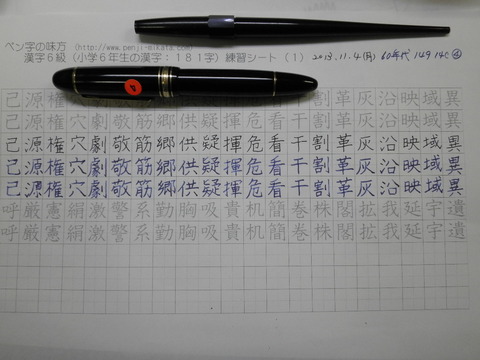 ペン字の味方 (http://www.penji-mikata.com)
漢字6級(小学6年生の漢字:181字)練習シート(1) 2013.11.4(月) 60年代 149 14C ④
己源権穴劇敬筋郷供疑揮危看干割革灰沿映域異
己源権穴劇敬筋郷供疑揮危看干割革灰沿映域異
己源権穴劇敬筋郷供疑揮危看干割革灰沿映域異
己源権穴劇敬筋郷供疑揮危看干割革灰沿映域異
己源権穴劇敬筋郷供疑揮危看干割革灰沿映域異
呼厳憲絹激警系勤胸吸貴机簡巻株閣拡我延宇遺
呼厳憲絹激警系勤胸吸貴机簡巻株閣拡我延宇遺